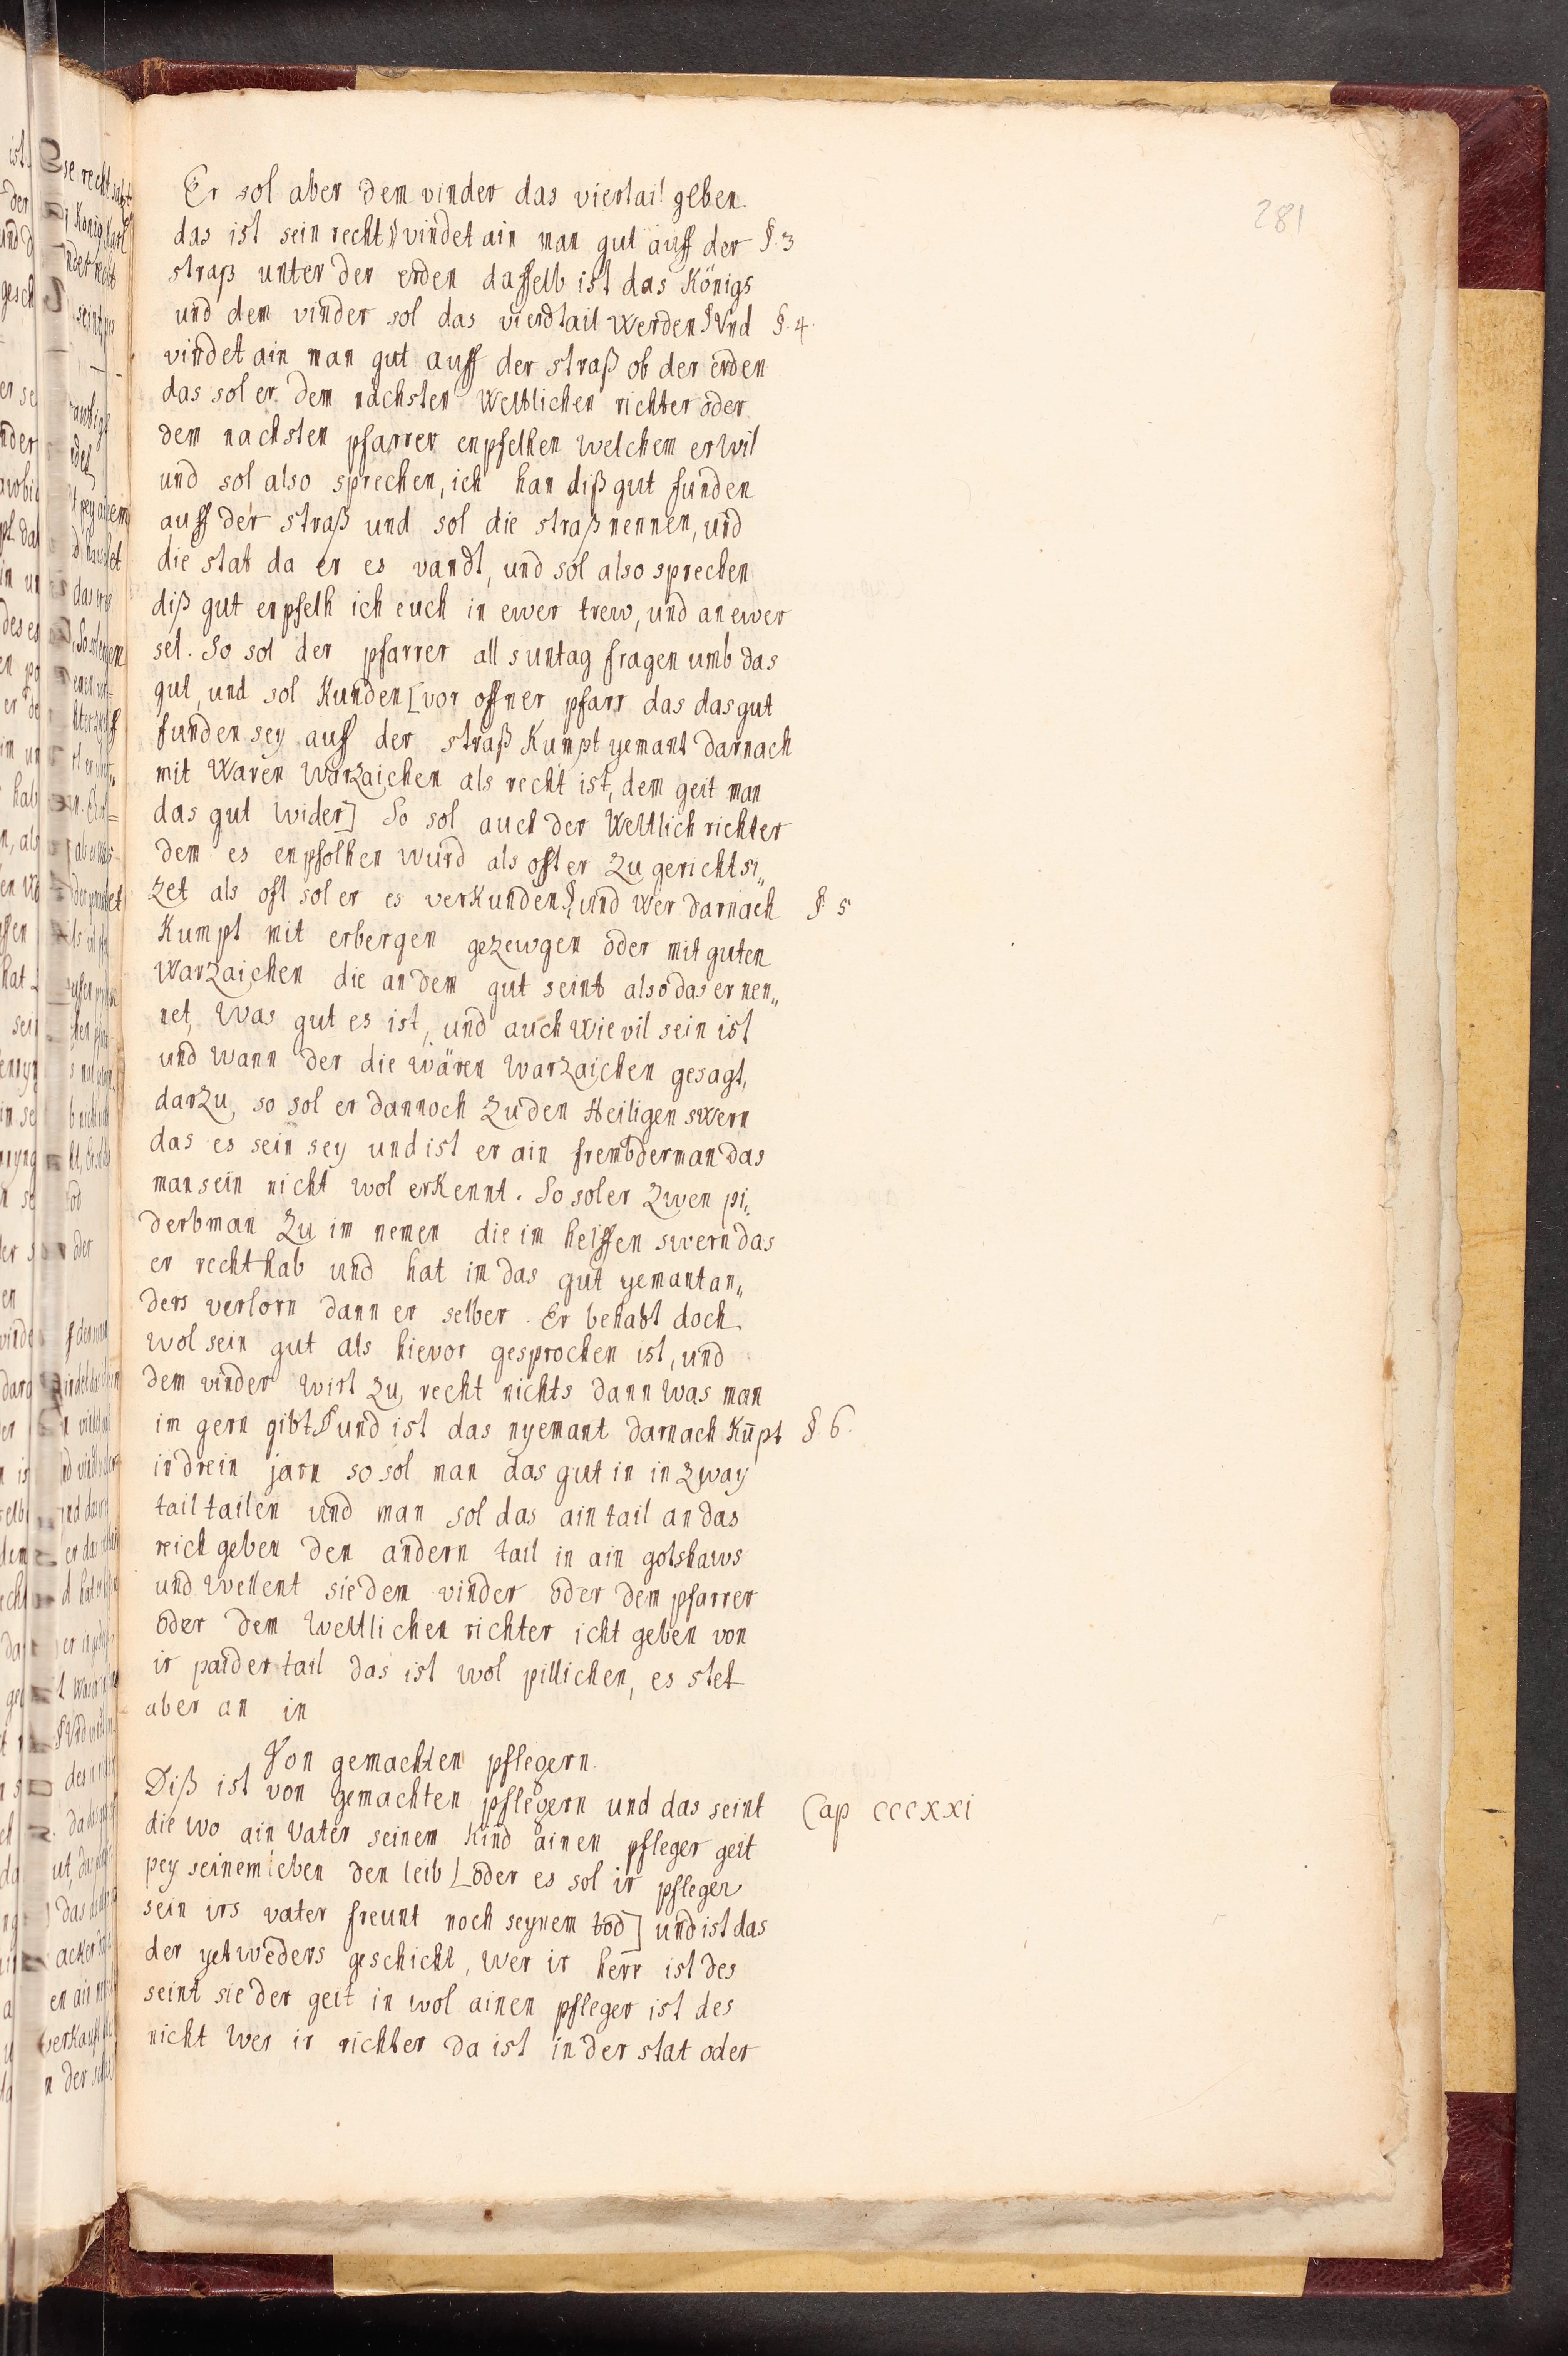 281
Er sol aber dem vinder das viertail geben.
das ist sein recht § vindet ain man gut auff der § 3
straß unter der erden dasselb ist das Königs
und dem vinder sol das vierdtail werden § Und § 4.
vindet ain man gut auff der straß ob der erden
das sol er dem nächsten Weltlichen richter oder
dem nachsten pfarrer enpfelhen welchem er wil
und sol also sprechen, ich han diß gut funden
auff der straß und sol die straß nennen, und
die stat da er es vandt, und sol also sprechen
diß gut enpfelh ich euch in ewer trew, und an ewer
sel. So sol der pfarrer all suntag fragen umb das
gut, und sol Kunden [vor offner pfarr das das gut
funden sey auff der straß Kumpt yemant darnach
mit Waren Warzaichen als recht ist, dem geit man
das gut wider] So sol auch der Weltlich richter
dem es enpfolhen wurd als offt er zu gericht si„
zet als oft sol er es verKunden § und wer darnach § 5
Kumpt mit erbergen gezewgen oder mit guten
Warzaichen die an dem gut seint also das er nen„
net, Was gut es ist, und auch wie vil sein ist
und wann der die wären warzaichen gesagt,
darzu, so sol er dannoch zu den Heiligen swern
das es sein sey und ist er ain frembder man das
man sein nicht wol erKennt. So sol er zwen pi„
derbman zu im nemen die im helffen swern das
er recht hab und hat im das gut yemant an„
ders verlorn dann er selber. Er behabt doch
wol sein gut als hievor gesprochen ist, und
dem vinder wirt zu recht nichts dann was man
im gern gibt § und ist das nyemant darnach Kūpt § 6.
in drein jarn so sol man das gut in in zway
tail tailen und man sol das ain tail an das
reich geben den andern tail in ain gotshaws
und wellent sie dem vinder oder dem pfarrer
oder dem Weltlichen richter icht geben von
ir paider tail das ist wol pillichen, es stet
aber an in
Von gemachten pflegern.
Diß ist von gemachten pflegern und das seint Cap cccxxi
die wo ain Vater seinem Kind ainen pfleger geit
pey seinem leben den leib [oder es sol ir pfleger
sein irs vater freunt noch seynem tod] und ist das
der yetweders geschicht, wer ir herr ist des
seint sie der geit in wol ainen pfleger ist des
nicht wer ir richter da ist in der stat oder